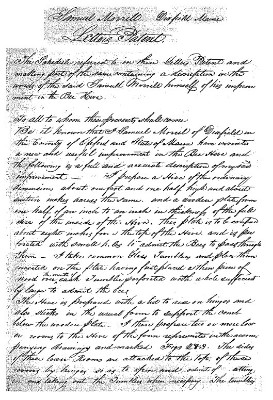 Samuel Morrell Dixfield Maine
Letters Patent.
The Schedule referred to in these Letters Patent and
making part of the same containing a description in the
words of the said Samuel Morrell himself of his improve
ment in the Bee Hive.
To all to whom these presents shall come
Be it known that I Samuel Morrell of Dixfield in
the County of Oxford and State of Maine have invented
a new and useful improvement in the Bee Hive and
the following is a full and accurate description of my said
improvement. — I prepare a Hive of the ordinary
dimensions about one foot and one half high and about
inches across the same and a wooden plate from
one half of an inch to an inch in thickness of the full
size of the inside of the Hive. This plate is to be inserted
about eight inches from the top of the Hive and is per
forated with small holes to admit the Bees to pass through
them — I take common Glass Tumblers and place them
inverted on the plate having first placed a thin piece of
wood under each Tumbler perforated with a hole sufficient
ly large to admit the bee
The Hive is prepared with a lid to rise on hinges and
also sticks in the usual form to support the comb
below the wooden plate. I then prepare two or more low
er rooms to the Hive of the form represented in the accom
panying drawings and marked Figs 2 & 3. The sides
of these lower Rooms are attached to the top of these
rooms by hinges so as to open and admit of putting
in and taking out the Tumblers when necessary. The tumblers